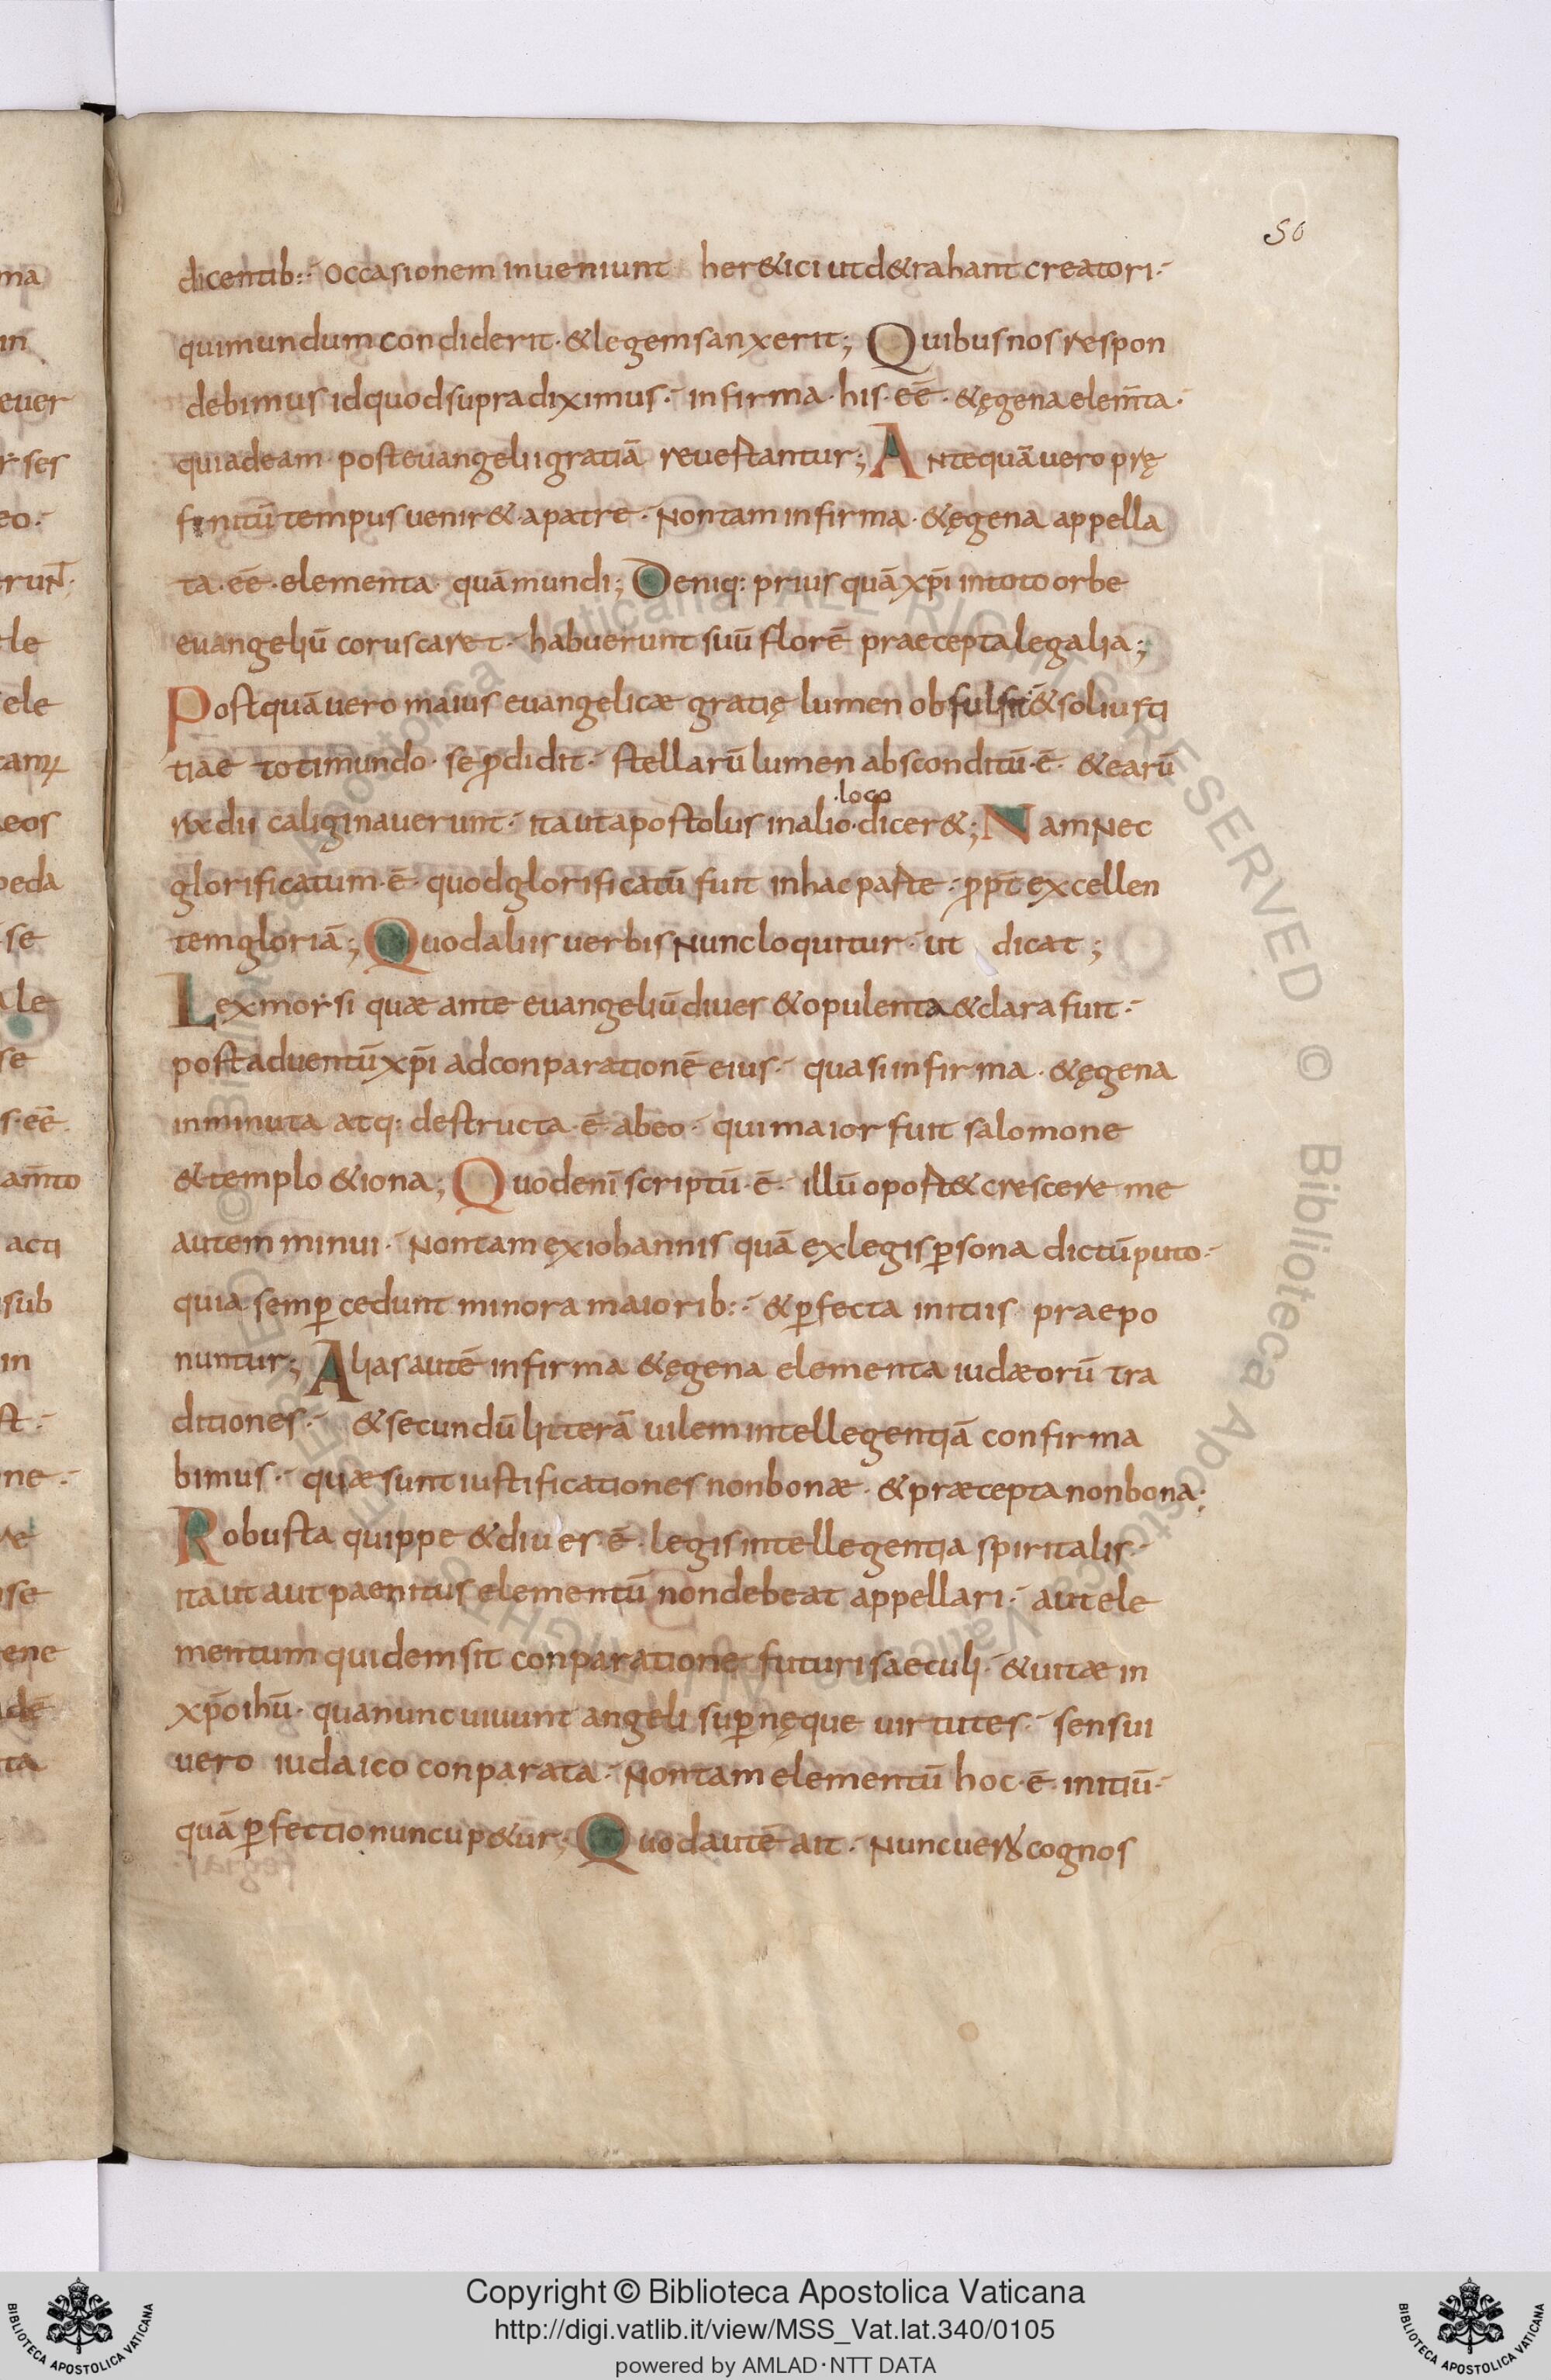 50
dicentib:· Occasionem inueniunt her&ici ut d&rahant creatori·
qui mundum condiderit · & legem sanxerit; Quibus nos respon
debimus id quod supra diximus · infirma · his · eē · & ęgena elem̄ta ·
qui ad eam post euangelii gratiā reuertantur; Antequā uero prę
finitū tempus uenir& · a patre · Non tam infirma · & ęgena appella
ta · eē · elementa quā mundi; Deniq: prius quā xp̄i in toto orbe
euangeliū coruscaret · habuerunt suū florē praecepta legalia;
Postquā uero maius euangelicæ gratię lumen obfulsit · & sol iusti
tiae toti mundo · se p̄didit · stellarū lumen absconditū · ē · & earū
·loco
radii caliginauerunt · ita ut apostolus in alio · dicer&; Nam Nec
glorificatum · ē · quod glorificatū fuit in hac parte · pp̄t excellen
tem gloriā; Quod aliis uerbis Nunc loquitur · ut dicat;
Lex morsi quæ ante euangeliū diues & opulenta & clara fuit ·
post aduentū xp̄i ad conparationē eius · quasi infirma · & ęgena
inminuta atq: destructa · ē · ab eo · qui maior fuit salomone
& templo & iona; Quod enī scriptū · ē · illū oport& crescere me
autem minui · Non tam ex iohannis quā ex legis p̄sona dictū puto ·
quia semp̄ cedunt minora maiorib:· & p̄fecta initiis praepo
nuntur; Alias autē infirma & ęgena elementa iudæorū tra
ditiones · & secundū litterā uilem intellegentiā confirma
bimus · quæ sunt iustificationes non bonæ · & præcepta non bona;
Robusta quippe & diues · ē · legis intellegentia spiritalis ·
ita ut aut paenitus elementū non debeat appellari · aut ele
mentum quidem sit conparatione futuri saeculi · & uitæ in
xp̄o ihū · qua nunc uiuunt angeli sup̄nęque uirtutes · sensui
uero iudaico conparata · Non tam elementū hoc · ē · initiū ·
quā p̄fectio nuncup&ur; Quod autē ait · Nunc uero cognos
Copyright © Biblioteca Apostolica Vaticana
http://digi.vatlib.it/view/MSS_Vat.lat.340/0105
powered by AMLAD·NTT DATA
BIBLIOTECA APOSTOLICA VATICANA
BIBLIOTECA APOSTOLICA VATICANA